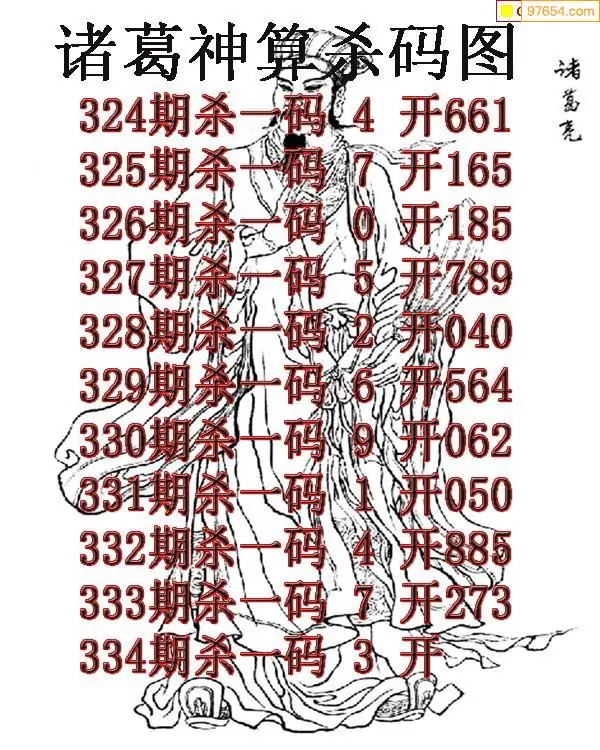 97654.com
诸葛神算杀码图
诸葛亮
324期杀一码 4 开661
325期杀一码 7 开165
326期杀一码 0 开185
327期杀一码 5 开789
328期杀一码 2 开040
329期杀一码 6 开564
330期杀一码 9 开062
331期杀一码 1 开050
332期杀一码 4 开885
333期杀一码 7 开273
334期杀一码 3 开